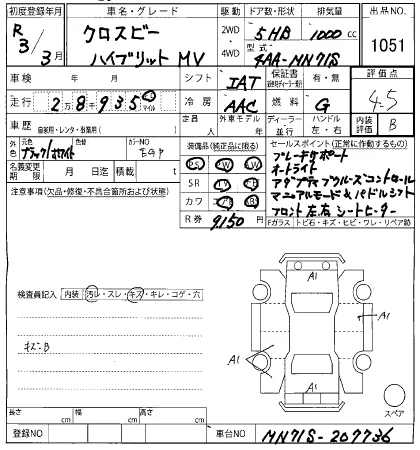 初度登録年月 車名・グレード 駆動 ドア数・形状 排気量 出品NO.
R3/3月 クロスビー 2WD 5HB 1000cc 1051
ハイブリット MV 4WD 型式 4AA-MN71S
車検 年 月 シフト IAT 保証書 有・無 評価点
走行 2万8千935 km マイル 冷房 AAC 燃料 G 4.5
車歴 自家用・レンタ・事業用( ) 定員 人 外車モデル 年 ディーラー 並行 ハンドル 左・右 内装評価 B
外色 元色 ブラック/ホワイト 色替 カラーNO 装備品(純正品に限る) セールスポイント(正常に作動するもの)
名義変更期限 月 日迄 積載 t PS PW ブレーキサポート
注意事項(欠品・修復・不具合箇所および状態) SR オートライト
カワ アダプティブクルーズコントロール
R券 9,150円 マニュアルモード&パドルシフト
フロント左右シートヒーター
Fガラス トビ石・キズ・ヒビ・ワレ・リペア跡
検査員記入 内装 汚レ・スレ・キズ・キレ・コゲ・穴
A1
A1
A1
A1
キズ-B
スペア
長さ cm 幅 cm 高さ cm
登録NO 車台NO MN71S-207736